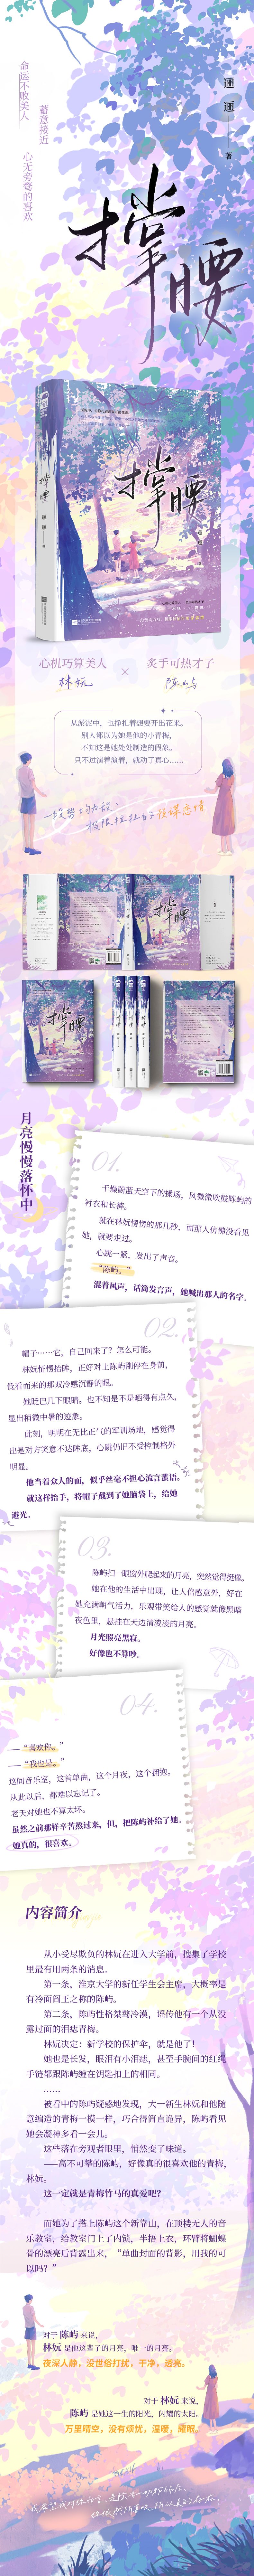 命运不败美人
蓄意接近
心无旁骛的喜欢
逦逦
著
掌腰
心机巧算美人
×
炙手可热才子
林妩
陈屿
从淤泥中，也挣扎着想要开出花来。
别人都以为她是他的小青梅，
不知这是她处处制造的假象。
只不过演着演着，就动了真心……
一段势均力敌、
极限拉扯的狂谋恋情
月亮慢慢落怀中
01.
干燥蔚蓝天空下的操场，风微微吹鼓陈屿的
衬衣和长裤。
就在林妩愣愣的那几秒，而那人仿佛没看见
她，就要走过。
心跳一紧，发出了声音。
“陈屿。”
混着风声，话筒发言声，她喊出那人的名字。
02.
帽子……它，自己回来了？怎么可能。
林妩怔愣抬眸，正好对上陈屿刚停在身前，
低看而来的那双冷感沉静的眼。
她眨巴几下眼睛。也不知是不是晒得有点久，
显出稍微中暑的迹象。
此刻，明明在无比正气的军训场地，感觉得
出是对方笑意不达眸底，心跳仍旧不受控制格外
明显。
他当着众人的面，似乎丝毫不担心流言蜚语。
就这样抬手，将帽子戴到了她脑袋上，给她
避光。
03.
陈屿扫一眼窗外爬起来的月亮，突然觉得挺像。
她在他的生活中出现，让人倍感意外，好在
她充满朝气活力，乐观带笑给人的感觉就像黑暗
夜色里，悬挂在天边清凌凌的月亮。
月光照亮黑寂。
好像也不算吵。
04.
——“喜欢你。”
——“我也是。”
这间音乐室，这首单曲，这个月夜，这个拥抱。
从此以后，都难以忘记了。
老天对她也不算太坏。
虽然之前那样辛苦熬过来，但，把陈屿补给了她。
她真的，很喜欢。
内容简介
从小受尽欺负的林妩在进入大学前，搜集了学校
里最有用两条的消息。
第一条，淮京大学的新任学生会主席，大概率是
有冷面阎王之称的陈屿。
第二条，陈屿性格桀骜冷漠，谣传他有一个从没
露过面的泪痣青梅。
林妩决定：新学校的保护伞，就是他了！
她也是长发，眼泪有小泪痣，甚至手腕间的红绳
手链都跟陈屿缠在钥匙扣上的相同。
……
被看中的陈屿疑惑地发现，大一新生林妩和他随
意编造的青梅一模一样，巧合得简直诡异，陈屿看见
她会凝神多看一会儿。
这些落在旁观者眼里，悄然变了味道。
——高不可攀的陈屿，好像真的很喜欢他的青梅，
林妩。
这一定就是青梅竹马的真爱吧？
而她为了搭上陈屿这个新靠山，在顶楼无人的音
乐教室，给教室门上了内锁，半捂上衣，环臂将蝴蝶
骨的漂亮后背露出来，“单曲封面的背影，用我的可
以吗？”
对于 陈屿 来说，
林妩 是他这辈子的月亮，唯一的月亮。
夜深人静，没世俗打扰，干净，透亮。
对于 林妩 来说，
陈屿 是她这一生的阳光，闪耀的太阳。
万里晴空，没有烦忧，温暖，耀眼。